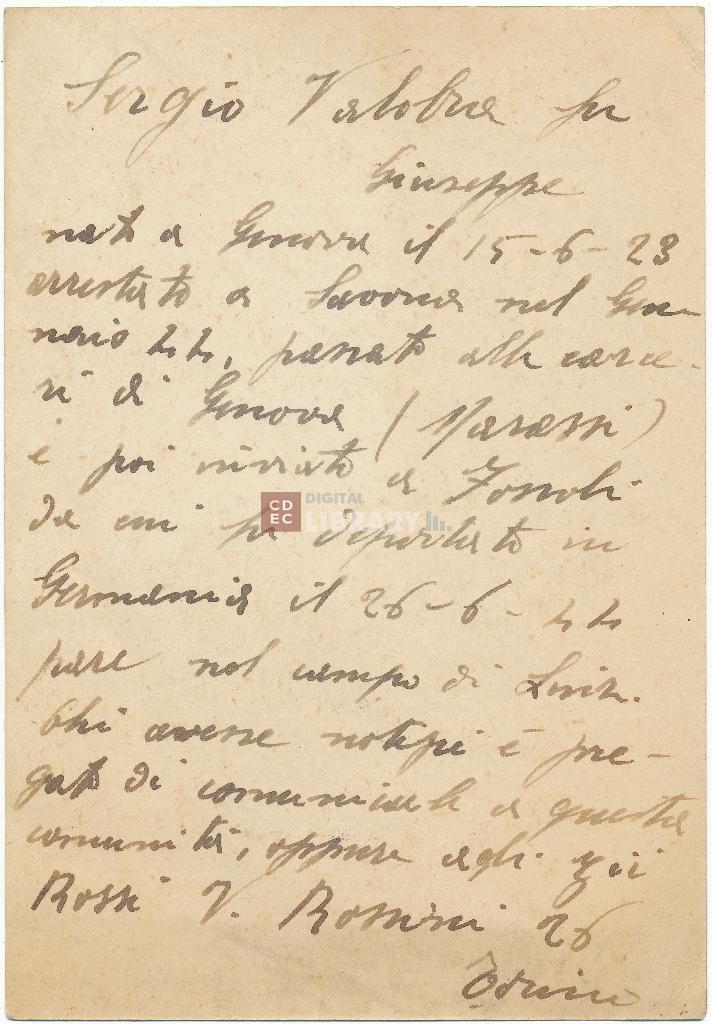 Sergio Valobra fu
Giuseppe
nato a Genova il 15-6-23
arrestato a Savona nel Gen-
naio 44, passato alle carce-
ri di Genova (Marassi)
e poi inviato a Fossoli
da cui fu deportato in
Germania il 26-6-44
pare nel campo di Linz.
Chi avesse notizie è pre-
gato di comunicarle a questa
comunità, oppure agli zii
Rossi V. Rossini 26
Torino
CD
EC
DIGITAL
LIBRARY